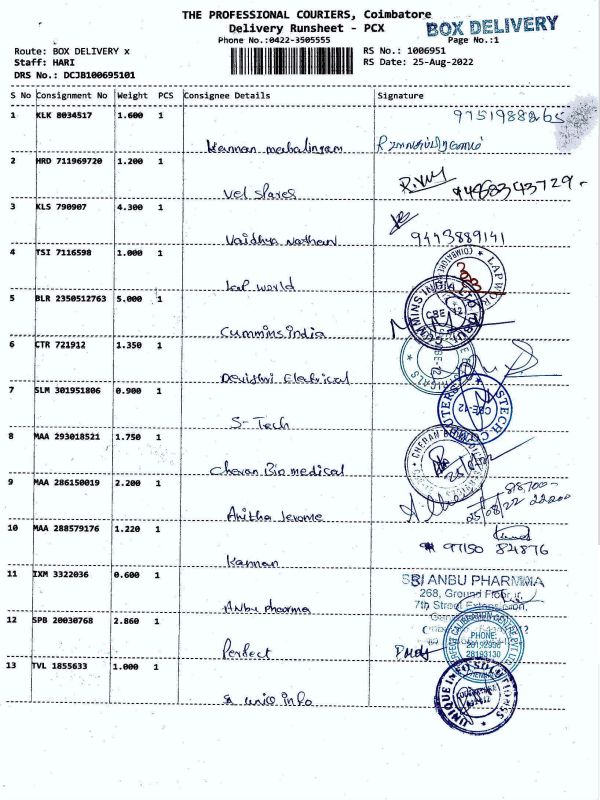 THE PROFESSIONAL COURIERS, Coimbatore
Delivery Runsheet - PCX
BOX DELIVERY
Phone No.:0422-3505555
Page No.:1
Route: BOX DELIVERY x
RS No.: 1006951
Staff: HARI
RS Date: 25-Aug-2022
DRS No.: DCJB100695101
S No Consignment No Weight PCS Consignee Details Signature
1 KLK 8034517 1.600 1
9751988265
Kannan mahalingam
2 HRD 711969720 1.200 1
Vel Spares
3 KLS 790907 4.300 1
Vaidhya Nathan
9443889141
4 TSI 7116598 1.000 1
Lap world
5 BLR 2350512763 5.000 1
Cummins india
CBE-12
6 CTR 721912 1.350 1
Devishri Electrical
7 SLM 301951806 0.900 1
S-Tech
CBE-12
8 MAA 293018521 1.750 1
Cheran Bio medical
9 MAA 286150019 2.200 1
Anitha Jerome
25/08/22
10 MAA 288579176 1.220 1
97150 84876
Kannan
11 IXM 3322036 0.600 1
SRI ANBU PHARMMA
268, Ground Floor
7th Street Extension,
Anbu pharma
12 SPB 20030768 2.860 1
PHONE:
Perfect
13 TVL 1855633 1.000 1
UNIQUE INFO SOLUTIONS
unice info